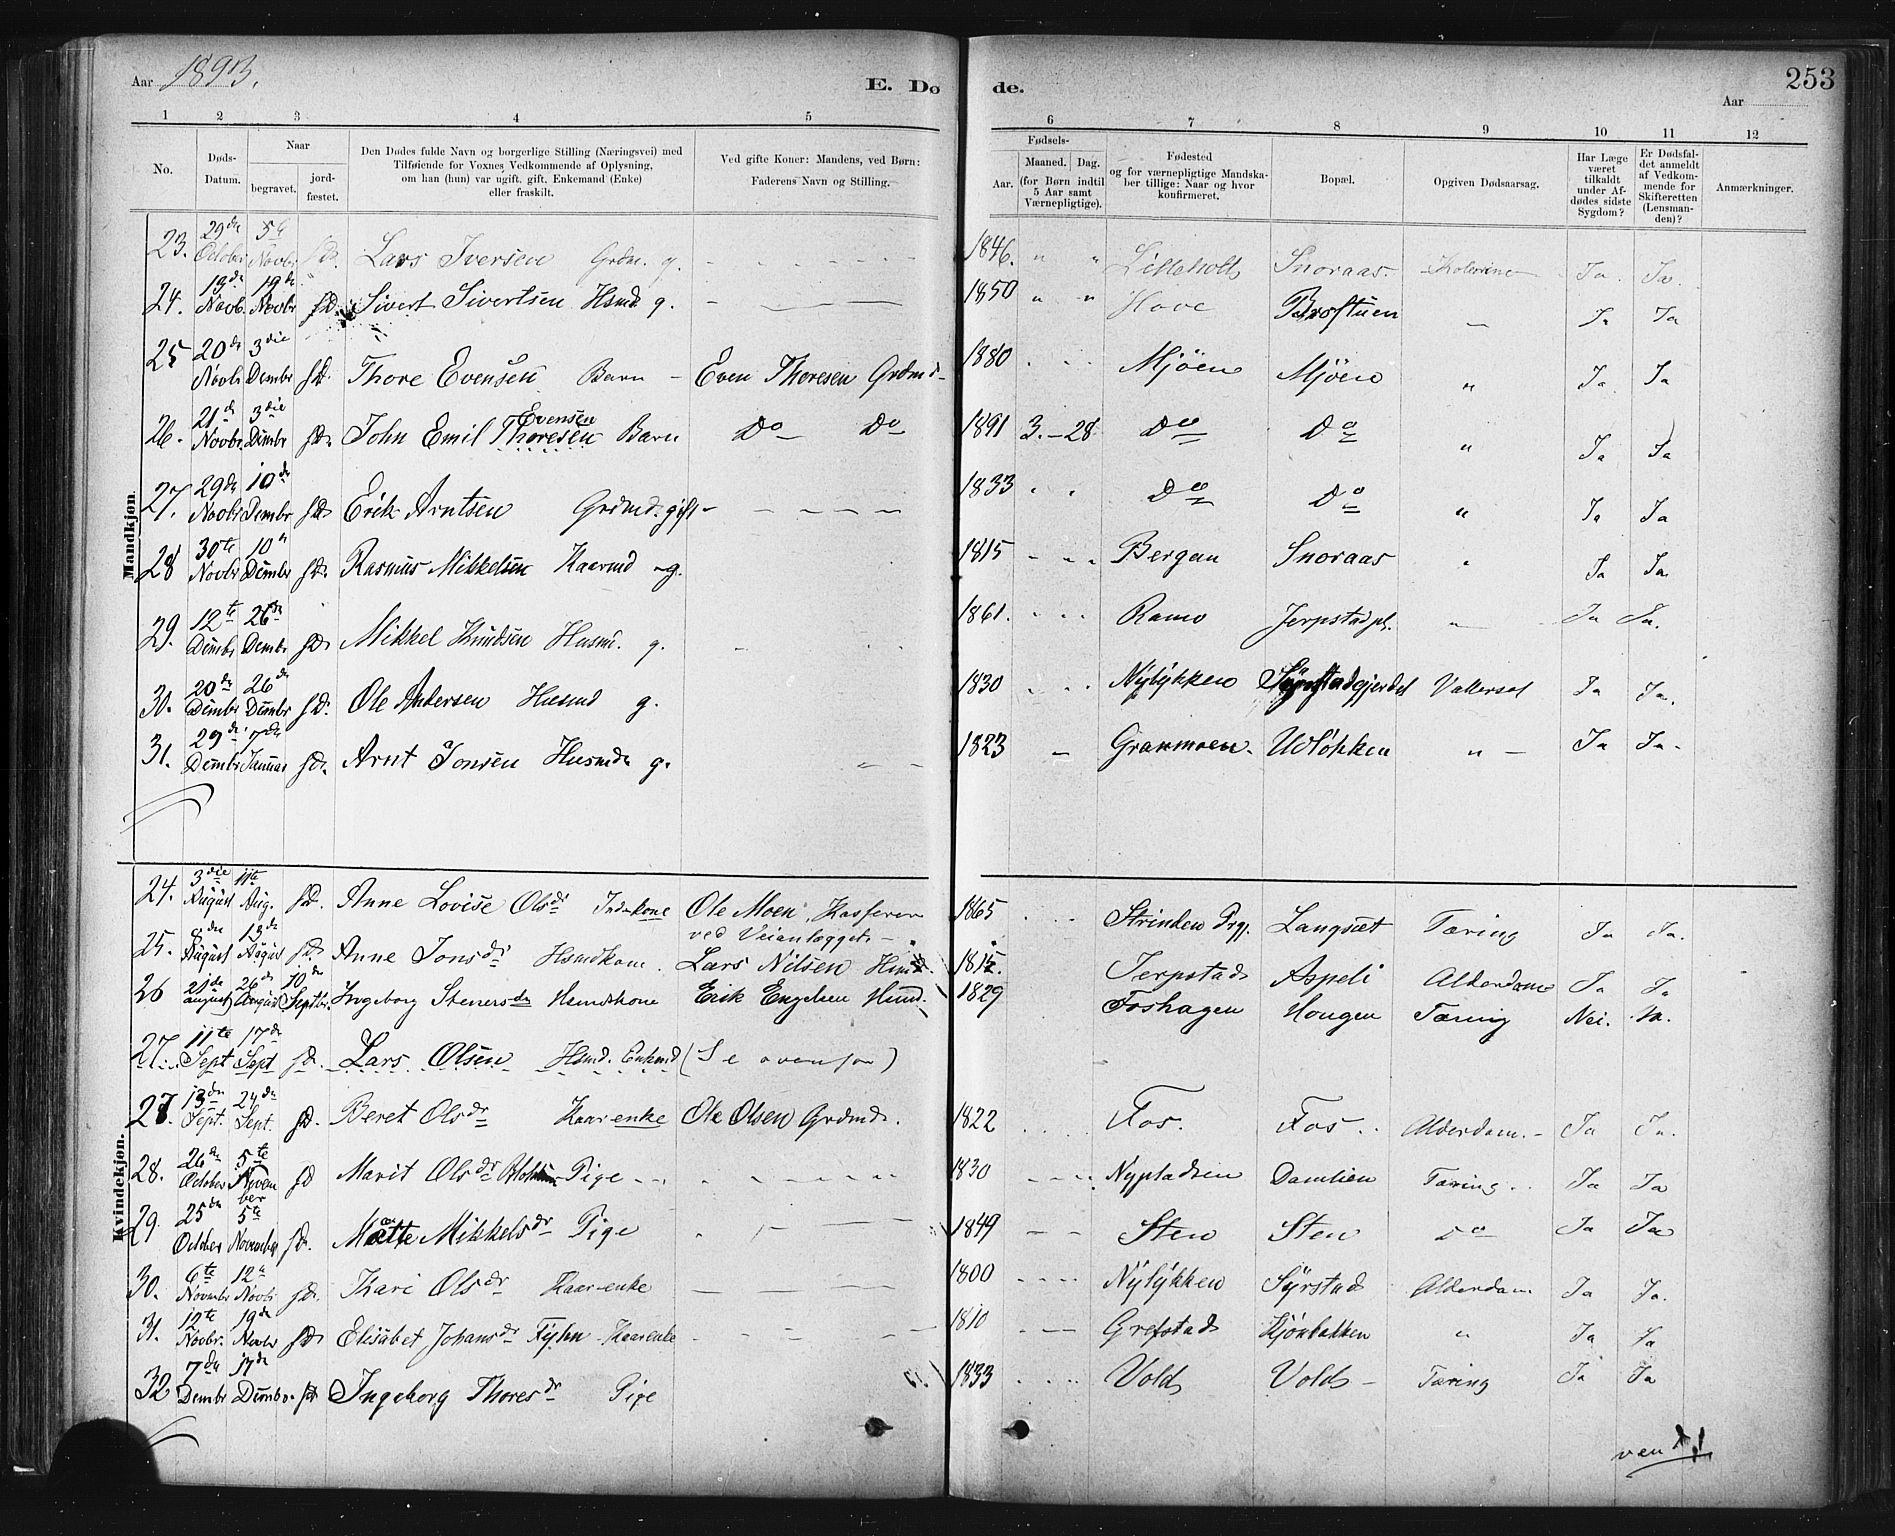 Aar 1893. E. Dø de. 253
Aar
1 2 3 4 5 6 7 8 9 10 11 12
No. Døds-Datum. Naar begravet. jordfæstet. Den Dødes fulde Navn og borgerlige Stilling (Næringsvei) med Tilføiende for Voxnes Vedkommende af Oplysning, om han (hun) var ugift, gift, Enkemand (Enke) eller fraskilt. Ved gifte Koner: Mandens, ved Børn: Faderens Navn og Stilling. Fødsels- Aar. Maaned. Dag. (for Børn indtil 5 Aar samt Værnepligtige). Fødested og for værnepligtige Mandskaber tillige: Naar og hvor konfirmeret. Bopæl. Opgiven Dødsaarsag. Har Læge været tilkaldt under Afdødes sidste Sygdom? Er Dødsfaldet anmeldt af Vedkommende for Skifteretten (Lensmanden)? Anmærkninger.
Mandkjøn.
23. 29de October 5te Novbr sd. Lars Iversen Grdm. g. - - - - - 1846. " " Lilleholt Snoraas Ja. Ja.
24. 13de Novb. 19de Novbr sd. Sivert Sivertsen Hsmd g. - — — — 1850 " " Hove Brostuen — Ja Ja
25 20de Novbr 3die Dembr sd. Thore Evensen Barn - Even Thoresen Grdmd- 1880 Mjøen Mjøen " Ja Ja
26. 21de Novbr. 3die Dembr sd. John Emil Thoresen Evensen Barn Do Do 1891 3.-28 Do Do " Ja Ja
27. 29de Novbr 10de Dembr sd. Erik Arntsen Grdmd. gift - - - - - 1833 Do Do " Ja Ja
28 30te Novbr 10de Dembr sd. Rasmus Mikkelsen Kaarmd g. 1815 Bergan Snoraas " Ja Ja.
29. 12te Dembr 26de Dembr sd. Mikkel Knudsen Husmd. g. 1861. Ramo Jerpstadpl. " Ja Ja.
30. 20de Dembr 26de Dembr sd. Ole Andersen Husmd g. 1830 Nyløkken Syrstadgjerdet Vattersot Ja Ja.
31. 29de Dembr 7de Januar sd. Arnt Jonsen Husmd g. 1823 - Granmoen. Udløkken " — Ja Ja.
Kvindekjøn.
24. 3die August 11te Aug. sd. Anne Lovise Olsdr Inderkone Ole Moen, Kasserer ved Veianlægget 1865 Strinden Prgj. Langsæt Tæring Ja Ja.
25. 8de August 13de August sd. Anne Jonsdr Hsmdkone. Lars Nilsen Hsmd. 1815. Jerpstad Aspeli Alderdom Ja Ja
26 21de august 26de August 10de Septbr. Ingeborg Stenersdr Hsmdskone Erik Engelsen Husmd. 1829 Foshagen Hougen Tæring Nei. Ja.
27. 11te Sept 17de Sept sd. Lars Olsen Hsmd. Enkmd (Se ovenfor)
27. 13de Sept. 24de Sept. sd. Beret Olsdr Kaarenke Ole Olsen Grdmd. 1822 Fos. Fos. Alderdom.- Ja Ja.
28. 26de October 5te November sd Marit Olsdr Pige - - - 1830 Nypladsen Damlien Tæring. Ja Ja
29. 25de October 5te November sd. Mætte Mikkelsdr Pige - - 1849 — — Sten Sten Do Ja Ja
30. 6te Novmbr 12te Novbr sd. Kari Olsdr Kaarenke — — — — 1800 Nyløkken Syrstad Alderdom Ja Ja.
31. 12te Novbr. 19de Novbr sd. Elisabet Johansdr Fyhn Kaarenke - - - - 1810 — Grefstad Kjønbakken " Ja Ja
32 7de Dembr 17de Dembr. sd Ingeborg Thoresdr Pige 1833 Vold Vold - Tæring Ja Ja
vend!